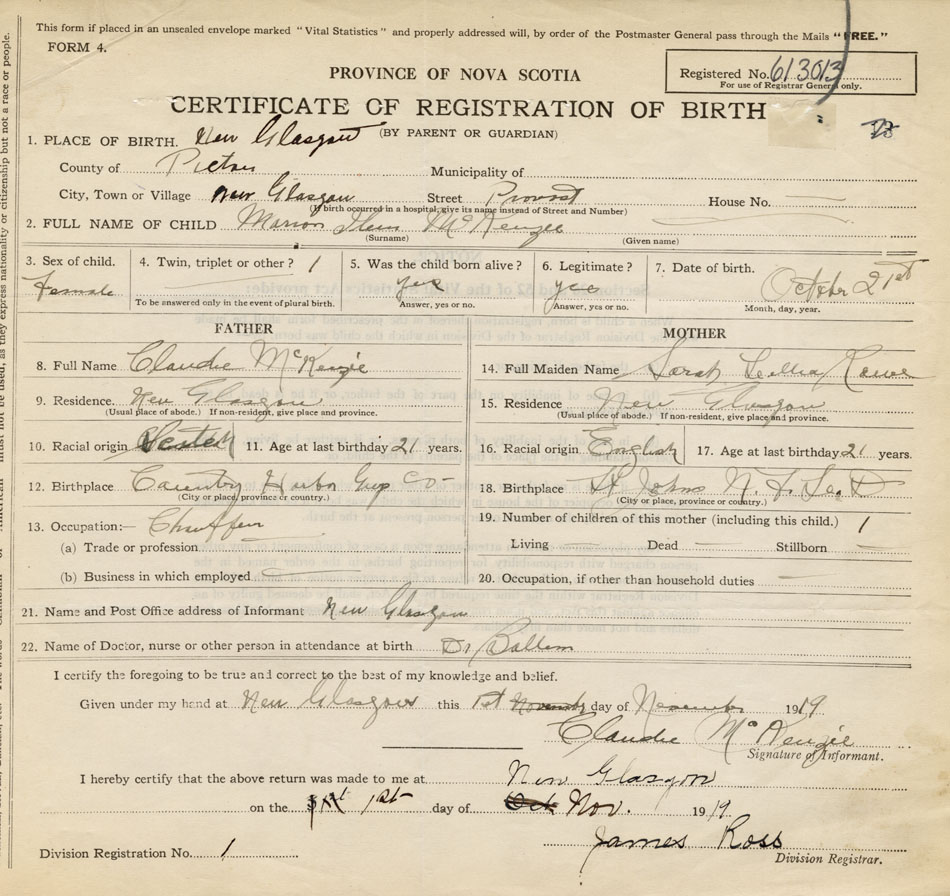 This form if placed in an unsealed envelope marked "Vital Statistics" and properly addressed will, by order of the Postmaster General pass through the Mails "FREE."
FORM 4.
PROVINCE OF NOVA SCOTIA
Registered No. 613013
For use of Registrar General only.
CERTIFICATE OF REGISTRATION OF BIRTH
(BY PARENT OR GUARDIAN)
1. PLACE OF BIRTH. New Glasgow
County of Pictou Municipality of
City, Town or Village New Glasgow Street Provost House No.
(If birth occurred in a hospital, give its name instead of Street and Number)
2. FULL NAME OF CHILD Marion McKenzie
(Surname) (Given name)
3. Sex of child. 4. Twin, triplet or other? 1 5. Was the child born alive? 6. Legitimate? 7. Date of birth.
Female yes yes October 21st
To be answered only in the event of plural birth. Answer, yes or no. Answer, yes or no. Month, day, year.
FATHER MOTHER
8. Full Name Claudie McKenzie 14. Full Maiden Name Sarah
9. Residence. New Glasgow 15. Residence New Glasgow
(Usual place of abode.) If non-resident, give place and province. (Usual place of abode.) If non-resident, give place and province.
10. Racial origin 11. Age at last birthday 21 years. 16. Racial origin English 17. Age at last birthday 21 years.
12. Birthplace Country Harbor Guy Co- 18. Birthplace St Johns N. F. L
(City or place, province or country.) (City or place, province or country.)
13. Occupation:— Chauffer 19. Number of children of this mother (including this child.) 1
(a) Trade or profession Living Dead Stillborn
(b) Business in which employed 20. Occupation, if other than household duties
21. Name and Post Office address of Informant New Glasgow
22. Name of Doctor, nurse or other person in attendance at birth Dr Ballem
I certify the foregoing to be true and correct to the best of my knowledge and belief.
Given under my hand at New Glasgow this 1st day of November 1919
Claudie McKenzie
Signature of Informant.
I hereby certify that the above return was made to me at New Glasgow
on the 1st day of Nov. 1919.
James Ross
Division Registrar.
Division Registration No. 1